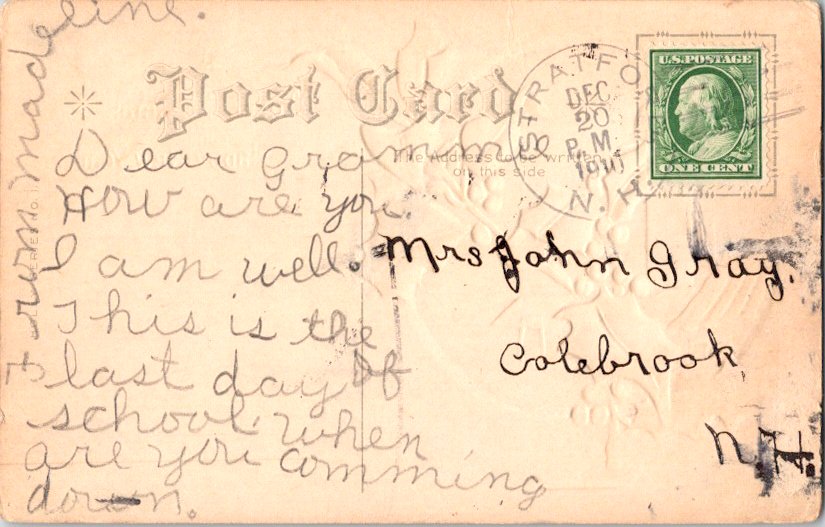 Post Card
The Address to be written
on this side
STRATFO
DEC
20
P.M.
1910
N.H.
U.S. POSTAGE
ONE CENT
Dear Gramm
How are you.
I am well.
This is the
last day of
school. when
are you comming
down.
From madeline.
Mrs John Gray.
Colebrook
N.H.